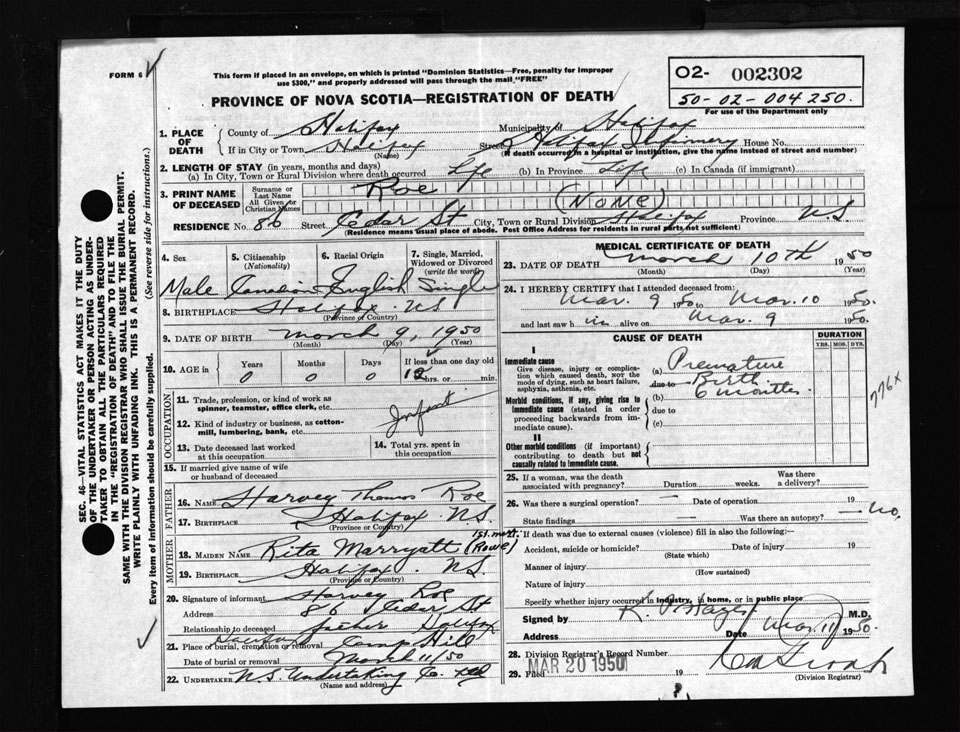 FORM 6
This form if placed in an envelope, on which is printed "Dominion Statistics—Free, penalty for improper
use $300," and properly addressed will pass through the mail "FREE"
O2- 002302
50-02-004250.
For use of the Department only
PROVINCE OF NOVA SCOTIA—REGISTRATION OF DEATH
1. PLACE OF DEATH
County of Halifax Municipality of Halifax
If in City or Town Halifax Street Halifax Infirmary House No.
(Name) (If death occurred in a hospital or institution, give the name instead of street and number)
2. LENGTH OF STAY (in years, months and days)
(a) In City, Town or Rural Division where death occurred Life (b) In Province Life (c) In Canada (if immigrant)
3. PRINT NAME OF DECEASED
Surname or Last Name Roe
All Given or Christian Names (None)
RESIDENCE No. 86 Street Cedar St City, Town or Rural Division Halifax Province NS
(Residence means usual place of abode. Post Office Address for residents in rural parts not sufficient)
4. Sex 5. Citizenship (Nationality) 6. Racial Origin 7. Single, Married, Widowed or Divorced (write the word)
Male Canadian English Single
8. BIRTHPLACE Halifax NS
(Province or Country)
9. DATE OF BIRTH March 9, 1950
(Month) (Day) (Year)
10. AGE in Years Months Days If less than one day old
0 0 0 12 hrs. or min.
OCCUPATION
11. Trade, profession, or kind of work as
spinner, teamster, office clerk, etc.
Infant
12. Kind of industry or business, as cotton-
mill, lumbering, bank, etc.
13. Date deceased last worked
at this occupation
14. Total yrs. spent in
this occupation
15. If married give name of wife
or husband of deceased
FATHER
16. NAME Harvey Thomas Roe
17. BIRTHPLACE Halifax NS.
(Province or Country)
MOTHER
18. MAIDEN NAME Rita Marryatt (Rowe)
19. BIRTHPLACE Halifax NS.
(Province or Country)
20. Signature of informant Harvey Roe
Address 86 Cedar St
Relationship to deceased father Halifax
21. Place of burial, cremation or removal Camp Hill
Date of burial or removal March 11/50
22. UNDERTAKER N.S. Undertaking Co. Ltd
(Name and address)
MEDICAL CERTIFICATE OF DEATH
23. DATE OF DEATH March 10TH 1950
(Month) (Day) (Year)
24. I HEREBY CERTIFY that I attended deceased from:
Mar. 9 1950 to Mar. 10 1950.
and last saw him alive on Mar. 9 1950.
CAUSE OF DEATH
DURATION
YRS. MOS. DYS.
I
Immediate cause
Give disease, injury or complica-
tion which caused death, NOT the
mode of dying, such as heart failure,
asphyxia, asthenia, etc.
(a) Premature
due to Birth
(b) 6 months
due to
(c)
776x
Morbid conditions, if any, giving rise to
immediate cause (stated in order
proceeding backwards from im-
mediate cause).
II
Other morbid conditions (if important)
contributing to death but not
causally related to immediate cause.
25. If a woman, was the death
associated with pregnancy? Duration weeks. Was there
a delivery?
26. Was there a surgical operation? — Date of operation 19
State findings — Was there an autopsy? — No.
27. If death was due to external causes (violence) fill in also the following:
Accident, suicide or homicide? Date of injury 19
(State which)
Manner of injury
(How sustained)
Nature of injury
Specify whether injury occurred in industry, in home, or in public place
Signed by M.D.
Address Date Mar. 11 1950.
28. Division Registrar's Record Number
29. Filed MAR 20 1950 19
(Division Registrar)
SEC. 46—VITAL STATISTICS ACT MAKES IT THE DUTY
OF THE UNDERTAKER OR PERSON ACTING AS UNDER-
TAKER TO OBTAIN ALL THE PARTICULARS REQUIRED
IN THE "REGISTRATION OF DEATH" AND TO FILE THE
SAME WITH THE DIVISION REGISTRAR WHO SHALL ISSUE THE BURIAL PERMIT.
WRITE PLAINLY WITH UNFADING INK. THIS IS A PERMANENT RECORD.
Every item of information should be carefully supplied. (See reverse side for instructions.)